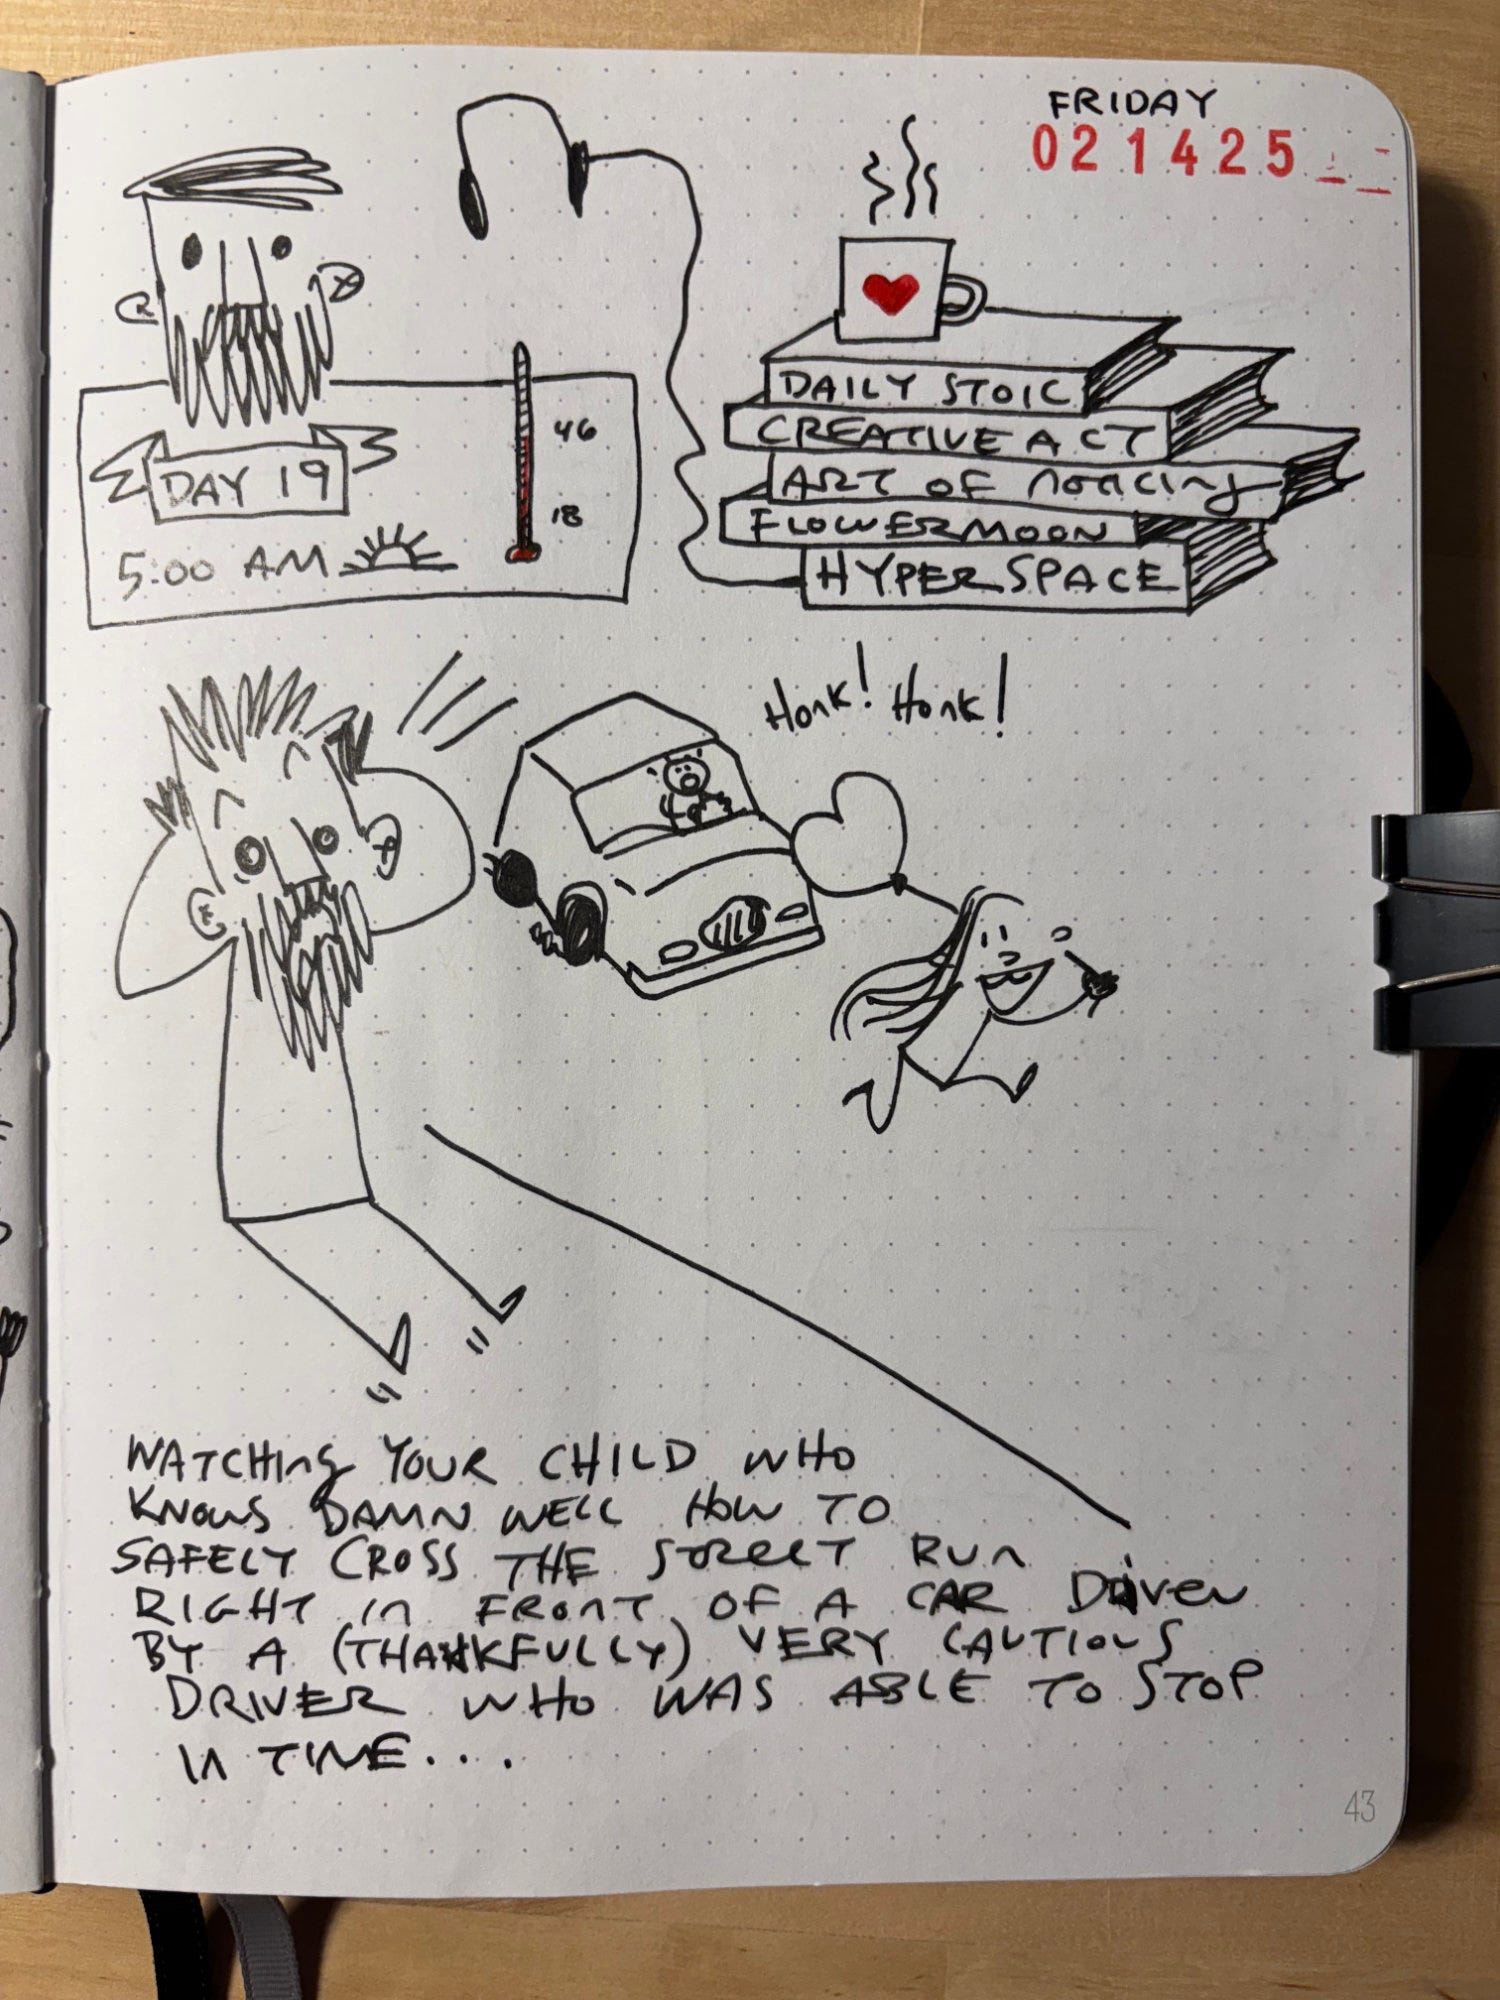 FRIDAY
021425
DAY 19
5:00 AM
46
18
DAILY STOIC
CREATIVE ACT
ART OF NOTICING
FLOWERMOON
HYPERSPACE
Honk! Honk!
WATCHING YOUR CHILD WHO
KNOWS DAMN WELL HOW TO
SAFELY CROSS THE STREET RUN
RIGHT IN FRONT OF A CAR DRIVEN
BY A (THANKFULLY) VERY CAUTIOUS
DRIVER WHO WAS ABLE TO STOP
IN TIME....
43